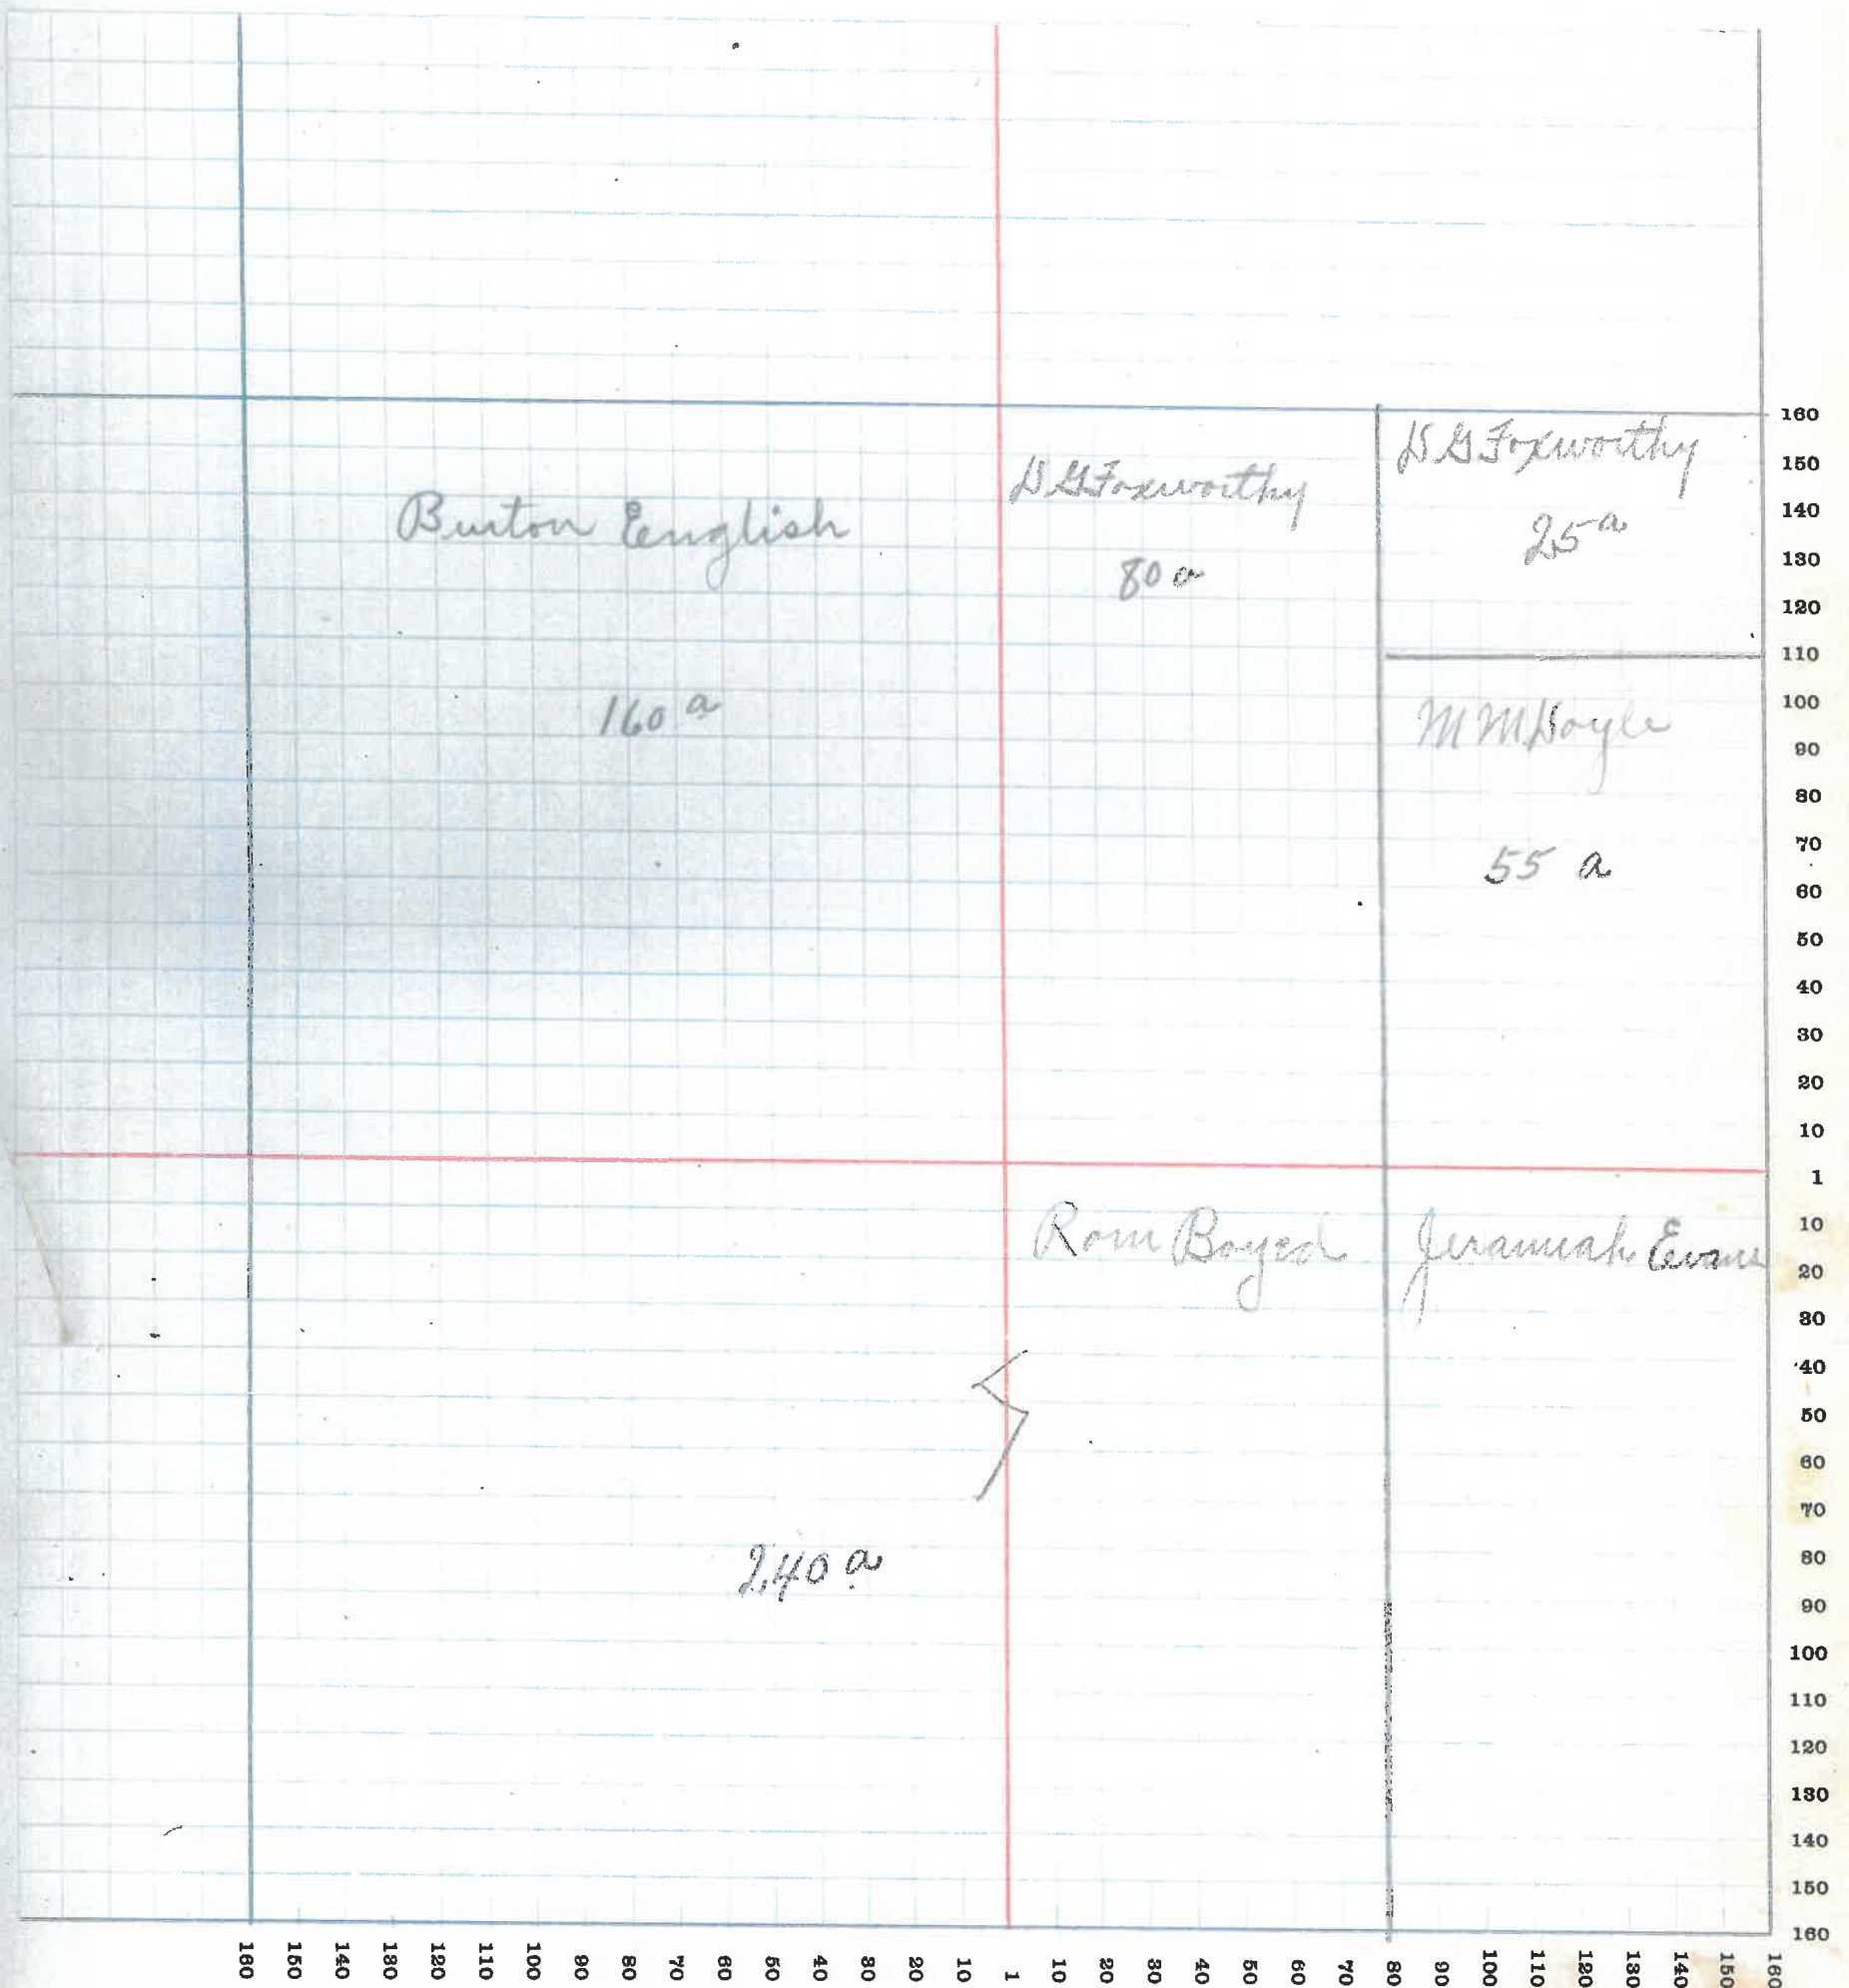 Burton English
160 a
D G Foxworthy
80 a
D G Foxworthy
25 a
M M Doyle
55 a
Rom Boyed
Jeramiah Evans
240 a
160
150
140
130
120
110
100
90
80
70
60
50
40
30
20
10
1
10
20
30
40
50
60
70
80
90
100
110
120
130
140
150
160
160 150 140 130 120 110 100 90 80 70 60 50 40 30 20 10 1 10 20 30 40 50 60 70 80 90 100 110 120 130 140 150 160